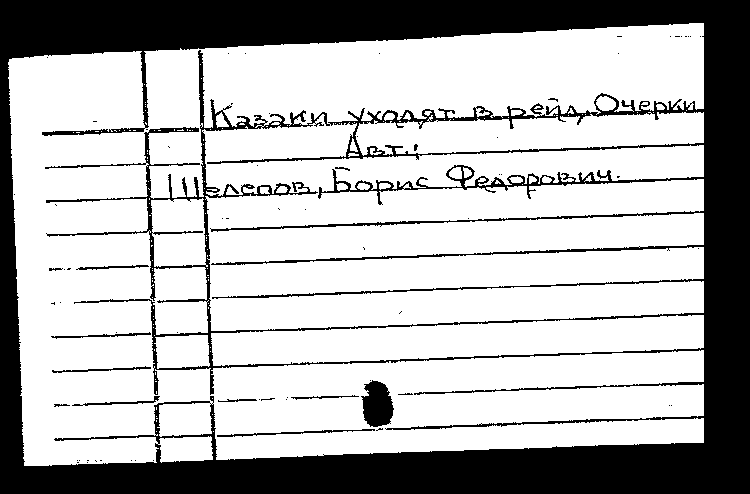 Казаки уходят в рейд. Очерки
Авт.:
Шелепов, Борис Федорович.